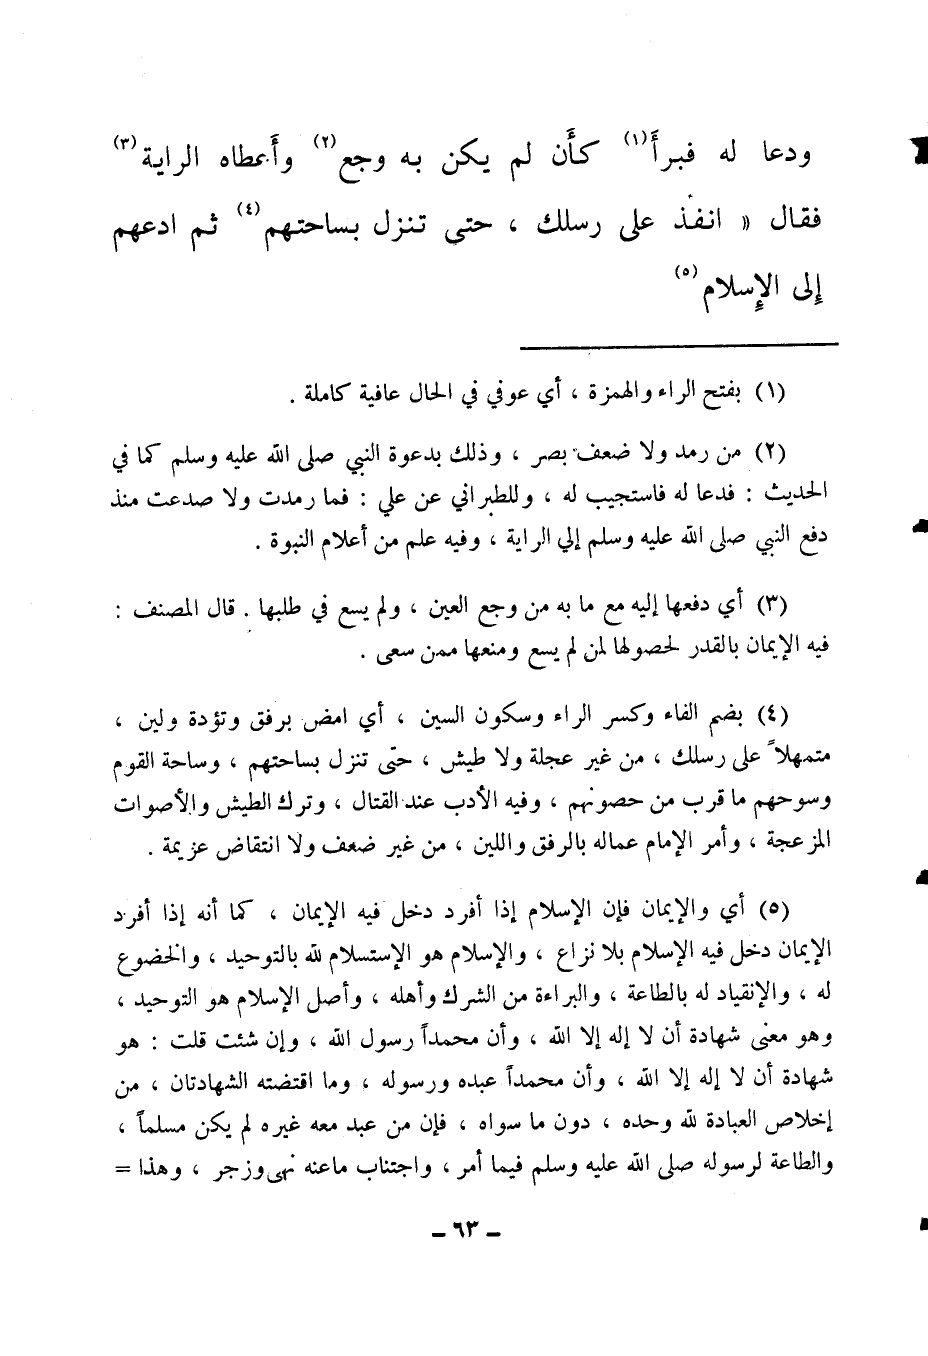 ودعا له فبرأ(١) كأن لم يكن به وجع(٢) وأعطاه الراية(٣)
فقال « انفذ على رسلك ، حتى تنزل بساحتهم(٤) ثم ادعهم
إلى الإسلام(٥)
(١) بفتح الراء والهمزة ، أي عوفي في الحال عافية كاملة .
(٢) من رمد ولا ضعف بصر ، وذلك بدعوة النبي صلى الله عليه وسلم كما في
الحديث : فدعا له فاستجيب له ، وللطبراني عن علي : فما رمدت ولا صدعت منذ
دفع النبي صلى الله عليه وسلم إلي الراية ، وفيه علم من أعلام النبوة .
(٣) أي دفعها إليه مع ما به من وجع العين ، ولم يسع في طلبها . قال المصنف :
فيه الإيمان بالقدر لحصولها لمن لم يسع ومنعها ممن سعى .
(٤) بضم الفاء وكسر الراء وسكون السين ، أي امض برفق وتؤدة ولين ،
متمهلاً على رسلك ، من غير عجلة ولا طيش ، حتى تنزل بساحتهم ، وساحة القوم
وسوحهم ما قرب من حصونهم ، وفيه الأدب عند القتال ، وترك الطيش والأصوات
المزعجة ، وأمر الإمام عماله بالرفق واللين ، من غير ضعف ولا انتقاض عزيمة .
(٥) أي والإيمان فإن الإسلام إذا أفرد دخل فيه الإيمان ، كما أنه إذا أفرد
الإيمان دخل فيه الإسلام بلا نزاع ، والإسلام هو الإستسلام لله بالتوحيد ، والخضوع
له ، والإنقياد له بالطاعة ، والبراءة من الشرك وأهله ، وأصل الإسلام هو التوحيد ،
وهو معنى شهادة أن لا إله إلا الله ، وأن محمداً رسول الله ، وإن شئت قلت : هو
شهادة أن لا إله إلا الله ، وأن محمداً عبده ورسوله ، وما اقتضته الشهادتان ، من
إخلاص العبادة لله وحده ، دون ما سواه ، فإن من عبد معه غيره لم يكن مسلماً ،
والطاعة لرسوله صلى الله عليه وسلم فيما أمر ، واجتناب ماعنه نهى وزجر ، وهذا =
ـ ٦٣ ـ